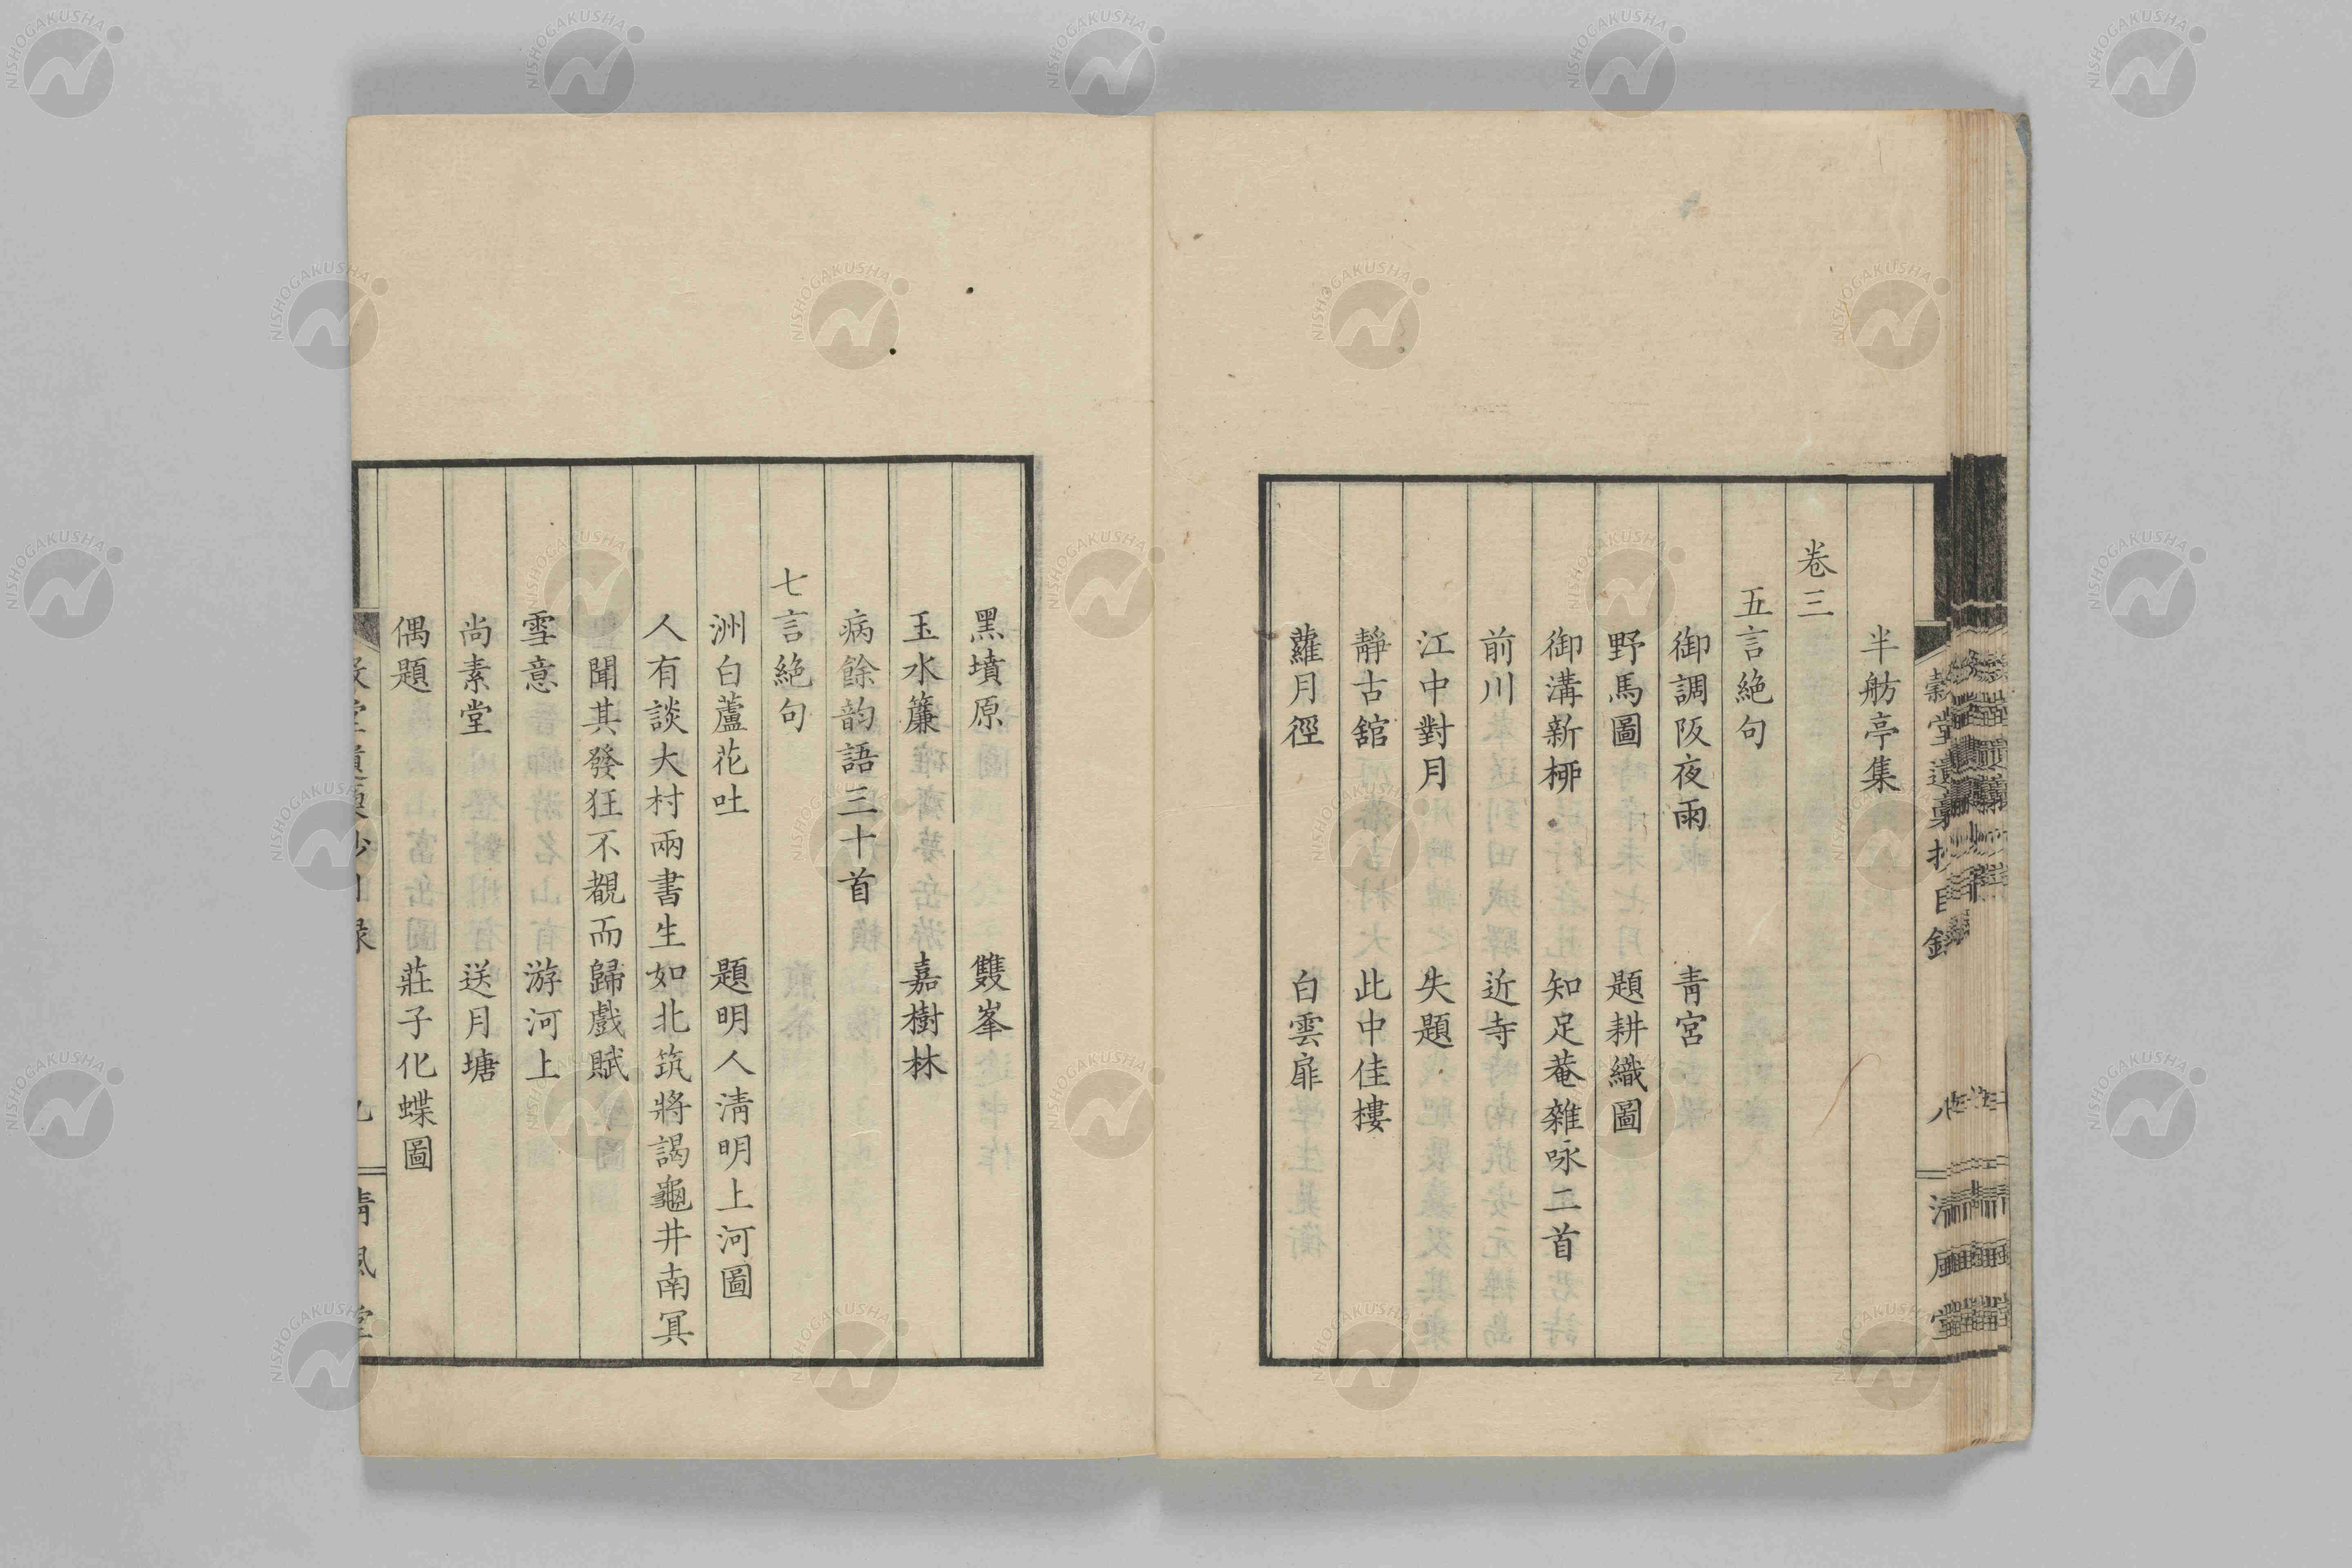 穀堂遺稾抄目錄
八
清風堂
半舫亭集
卷三
五言絶句
御調阪夜雨　靑宮
野馬圖　題耕織圖
御溝新栁　知足菴雜咏二首
前川　近寺
江中對月　失題
靜古舘　此中佳樓
蘿月徑　白雲扉
黑墳原　雙峯
玉水簾　嘉樹林
病餘韵語三十首
七言絶句
洲白蘆花吐　題明人淸明上河圖
人有談大村兩書生如北筑將謁龜井南冥
聞其發狂不覩而歸戲賦
雪意　游河上
尚素堂　送月塘
偶題　莊子化蝶圖
NISHOGAKUSHA